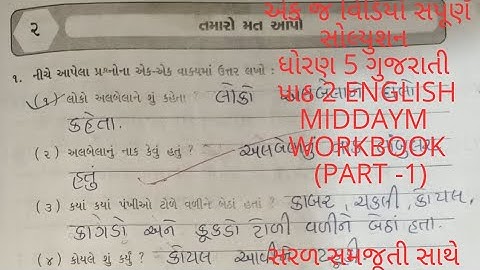 ૨
તમારો મત આપો
૧. નીચે આપેલા પ્રશ્નોના એક-એક વાક્યમાં ઉત્તર લખો :
(૧) લોકો અલબેલાને શું કહેતા ? લોકો
કહેતા.
(૨) અલબેલાનું નાક કેવું હતું ?
હતું
(૩) કયાં કયાં પંખીઓ ટોળે વળીને બેઠાં હતાં ? કાબર, ચકલી, કોયલ,
કાગડો અને કૂકડો ટોળી વળીને બેઠાં હતાં.
(૪) કોયલે શું કર્યું ? કોયલ
એક જ વિડિયો સંપૂર્ણ
સોલ્યુશન
ધોરણ 5 ગુજરાતી
પાઠ 2 ENGLISH
MIDDAYM
WORKBOOK
(PART -1)
સરળ સમજૂતી સાથે